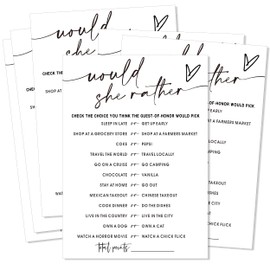 would
she
CHECK THE
would
she rather
CHECK THE CHOICE YOU THINK THE GUEST-OF-HONOR WOULD PICK
SLEEP IN LATE GET UP EARLY
SHOP AT A GROCERY STORE SHOP AT A FARMERS MARKET
COKE PEPSI
TRAVEL THE WORLD TRAVEL LOCALLY
GO ON A CRUISE GO CAMPING
CHOCOLATE VANILLA
STAY AT HOME GO OUT
MEXICAN TAKEOUT CHINESE TAKEOUT
COOK DINNER DO THE DISHES
LIVE IN THE COUNTRY LIVE IN THE CITY
OWN A DOG OWN A CAT
WATCH A HORROR MOVIE WATCH A CHICK FLICK
total points
OF-HONOR WOULD PICK
EARLY
AT A FARMERS MARKET
LOCALLY
PING
A
TAKEOUT
DISHES
THE CITY
CAT
A CHICK FLICK